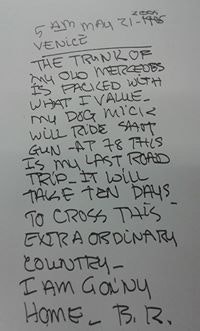 5 AM MAY 21-1995
VENICE
THE TRUNK OF
MY OLD MERCEDES
IS PACKED WITH
WHAT I VALUE_
MY DOG MICK
WILL RIDE SHOT
GUN - AT 78 THIS
IS MY LAST ROAD
TRIP_ IT WILL
TAKE TEN DAYS_
TO CROSS THIS
EXTRAORDINARY
COUNTRY_
I AM GOING
HOME_ B.R.